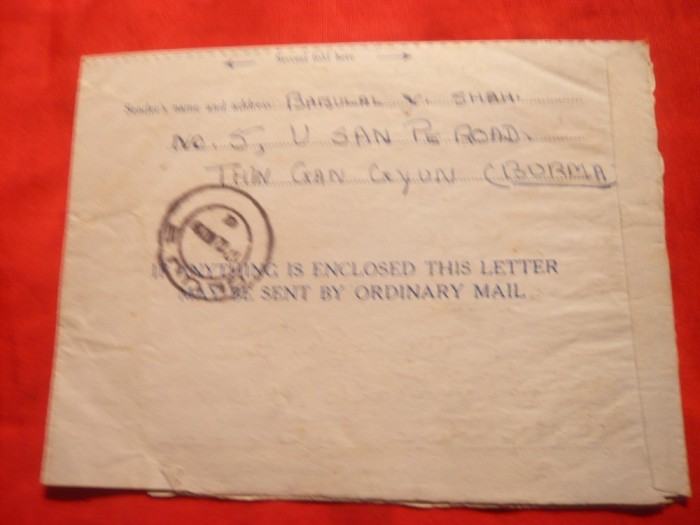 Second fold here
Sender's name and address BABULAL V. SHAH.
NO. 5, U SAN PE ROAD.
THIN GAN GYUN (BURMA
IF ANYTHING IS ENCLOSED THIS LETTER
MAY BE SENT BY ORDINARY MAIL